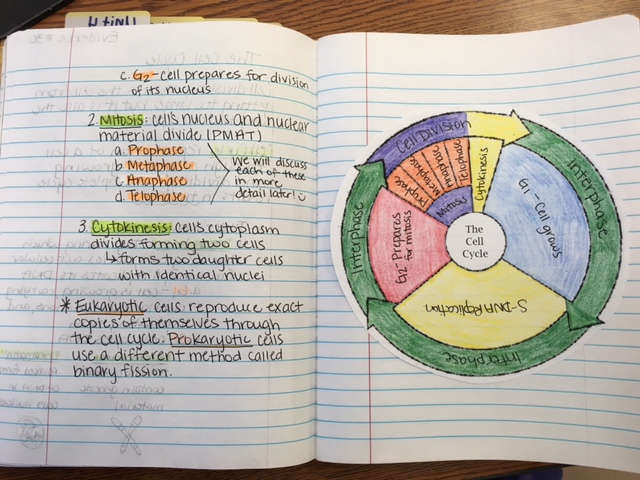 Unit 4
c. G2-cell prepares for division
of its nucleus
2. Mitosis: cell's nucleus and nuclear
material divide (PMAT)
a. Prophase
b. Metaphase
c. Anaphase
d. Telophase
we will discuss
each of these
in more
detail later!
3. Cytokinesis: cells cytoplasm
divides forming two cells
↳ forms two daughter cells
with identical nuclei
* Eukaryotic cells reproduce exact
copies of themselves through
the cell cycle. Prokaryotic cells
use a different method called
binary fission.
Cell Division
Prophase
Metaphase
Anaphase
Telophase
Mitosis
Cytokinesis
Interphase
G1-Cell grows
The
Cell
Cycle
Interphase
G2-Prepares
for mitosis
S-DNA Replication
Interphase